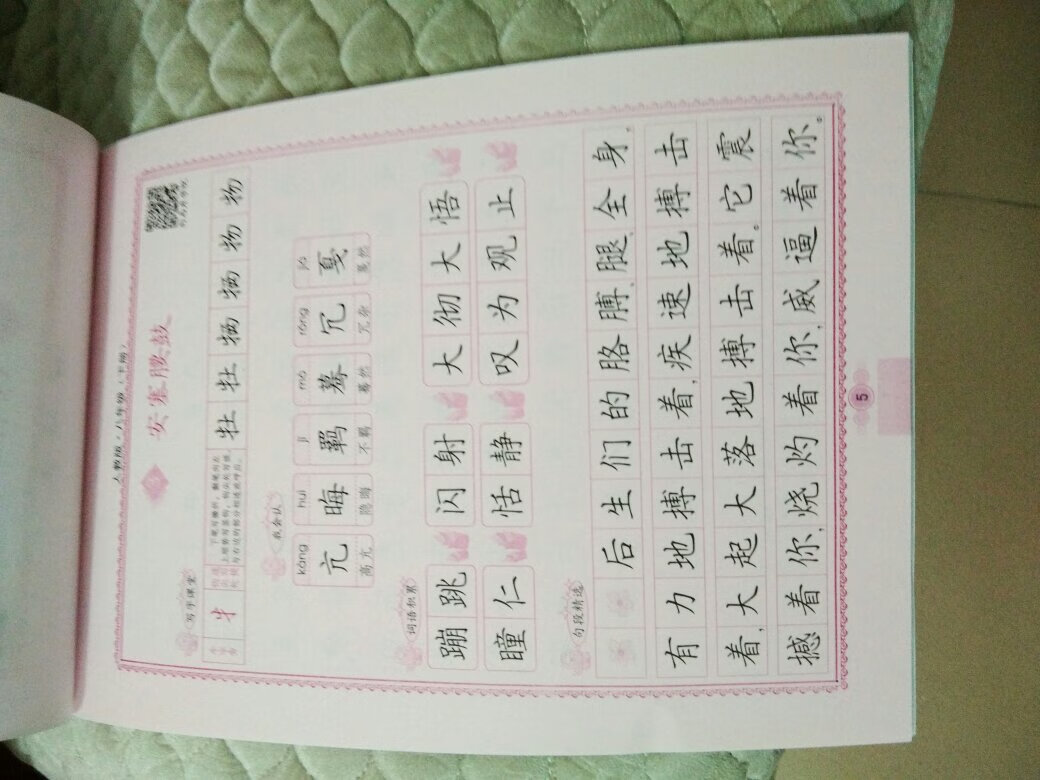 人教版·八年级（下册）
安塞腰鼓
写字课堂
牛 牡 牡 牺 牺 物 物
我会认
kàng huì jī mò rǒng jiá
亢 晦 羁 蓦 冗 戛
高亢 隐晦 不羁 蓦然 冗杂 戛然
词语积累
蹦跳 闪射 大彻大悟
瞳仁 恬静 叹为观止
句段精选
后生们的胳膊、腿、全身，
有力地搏击着，疾速地搏击
着，大起大落地搏击着。它震
撼着你，烧灼着你，威逼着你。
5